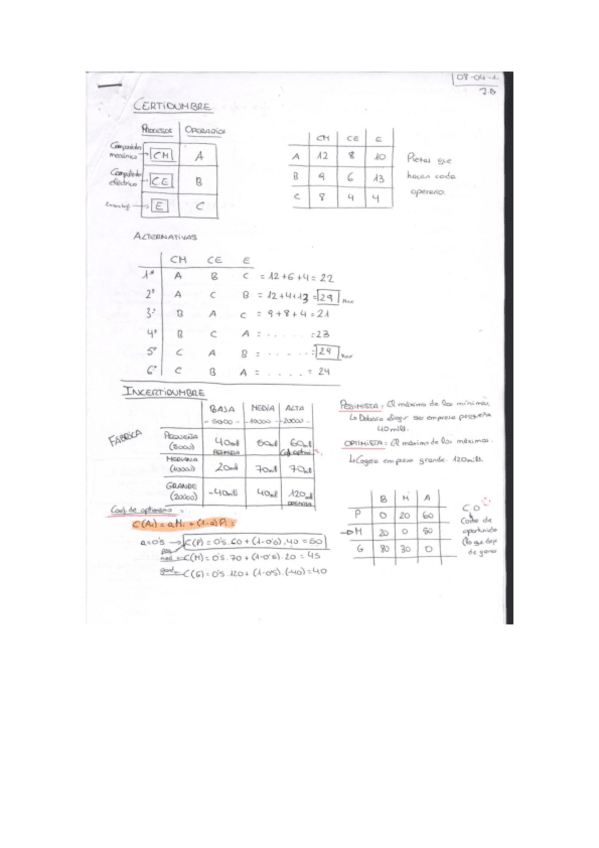 08-04-1
2B
CERTIDUMBRE
PROCESOS OPERARIOS
Computador mecánico CM A
Computador eléctrico CE B
E C
CM CE E
A 12 8 10
B 9 6 13
C 8 4 4
Piezas que
hacen cada
operario.
ALTERNATIVAS
CM CE E
1ª A B C = 12+6+4 = 22
2ª A C B = 12+4+13 = 29 Max
3ª B A C = 9+8+4 = 21
4ª B C A = ...... = 23
5ª C A B = ...... = 29 Max
6ª C B A = ..... = 24
INCERTIDUMBRE
FÁBRICA
BAJA MEDIA ALTA
-5000- -10000- -20000-
PEQUEÑA (5000) 40mil 60mil 60mil
MEDIANA (10000) 20mil 70mil 70mil
GRANDE (20000) -40mil 40mil 120mil
PESIMISTA: El máximo de los mínimos
Debería elegir ser empresa pequeña
40mill.
OPTIMISTA: El máximo de los máximos.
Cogería empresa grande. 120mill.
Coef. de optimismo =
C(Ai) = a.Mi + (1-a)Pi =
a=0'5 → C(P) = 0'5.60 + (1-0'5).40 = 50
C(M) = 0'5.70 + (1-0'5).20 = 45
C(G) = 0'5.120 + (1-0'5).(-40) = 40
B M A
P 0 20 60
→M 20 0 50
G 80 30 0
CO
Coste de
oportunidad
(lo que dejo
de ganar